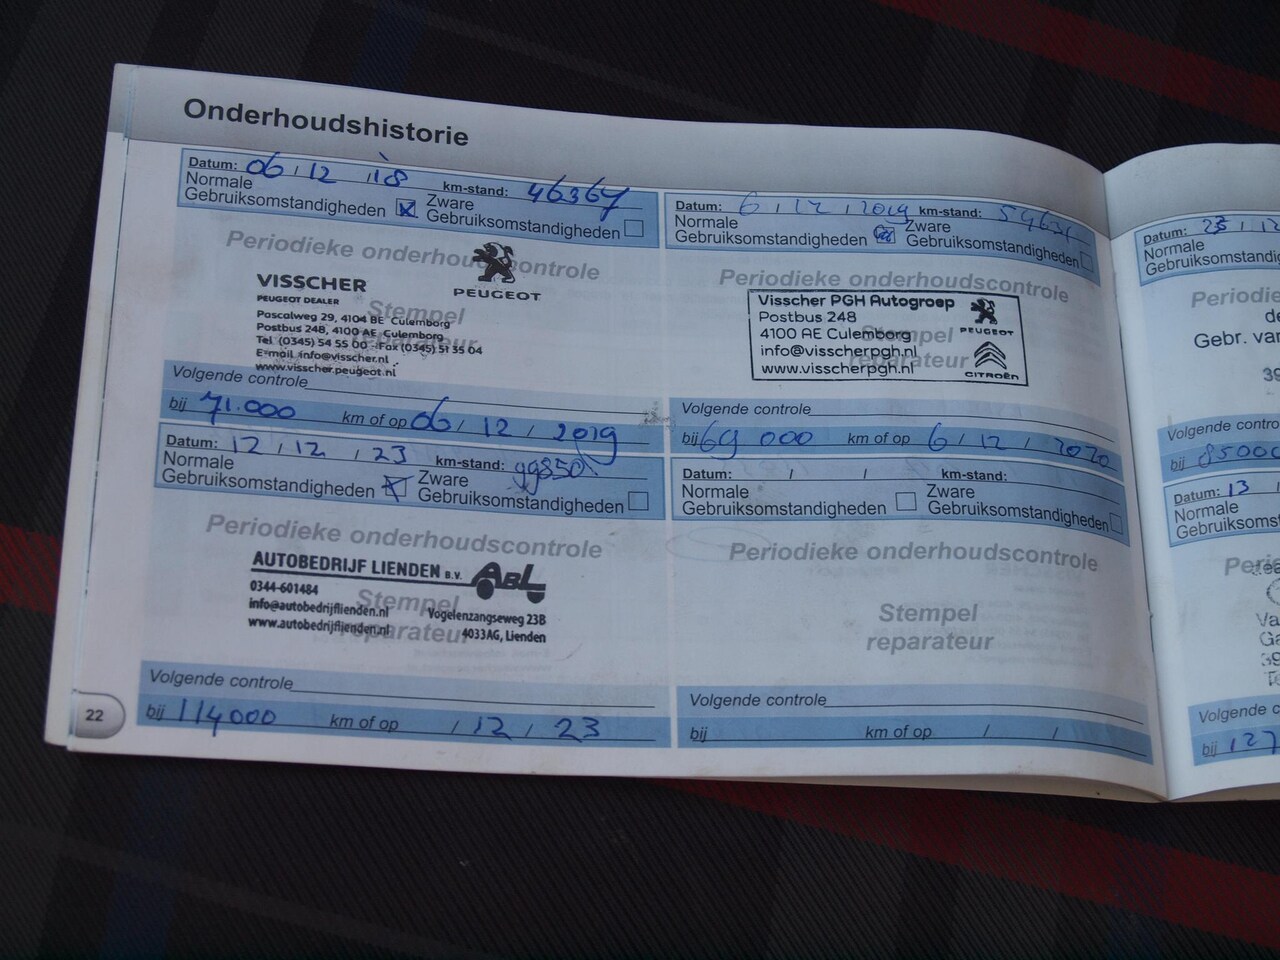 Onderhoudshistorie
Datum: 06 / 12 / 18 km-stand: 46367
Normale Gebruiksomstandigheden Zware Gebruiksomstandigheden
Periodieke onderhoudscontrole
Stempel reparateur
VISSCHER
PEUGEOT DEALER
PEUGEOT
Pascalweg 29, 4104 BE Culemborg
Postbus 248, 4100 AE Culemborg
Tel (0345) 54 55 00 - Fax (0345) 51 35 04
E-mail info@visscher.nl
www.visscher.peugeot.nl
Volgende controle
bij 71.000 km of op 06 / 12 / 2019
Datum: 6 / 12 / 2019 km-stand:
Normale Gebruiksomstandigheden Zware Gebruiksomstandigheden
Periodieke onderhoudscontrole
Stempel reparateur
Visscher PGH Autogroep
Postbus 248
4100 AE Culemborg
info@visscherpgh.nl
www.visscherpgh.nl
PEUGEOT
CITROËN
Volgende controle
bij 69 000 km of op 6 / 12 / 2020
Datum: 12 / 12 / 23 km-stand: 99850
Normale Gebruiksomstandigheden Zware Gebruiksomstandigheden
Periodieke onderhoudscontrole
Stempel reparateur
AUTOBEDRIJF LIENDEN B.V. ABL
0344-601484
info@autobedrijflienden.nl Vogelenzangseweg 23B
www.autobedrijflienden.nl 4033AG, Lienden
Volgende controle
bij 114000 km of op / 12 / 23
Datum: / / km-stand:
Normale Gebruiksomstandigheden Zware Gebruiksomstandigheden
Periodieke onderhoudscontrole
Stempel
reparateur
Volgende controle
bij km of op / /
22
Datum: 23 / 12
Normale
Gebruiksomstandig
Periodie
de
Gebr. van
39
Volgende contro
bij 85000
Datum: 13 /
Normale
Gebruiksomst
Peri
Va
Ga
39
Te
Volgende c
bij 127